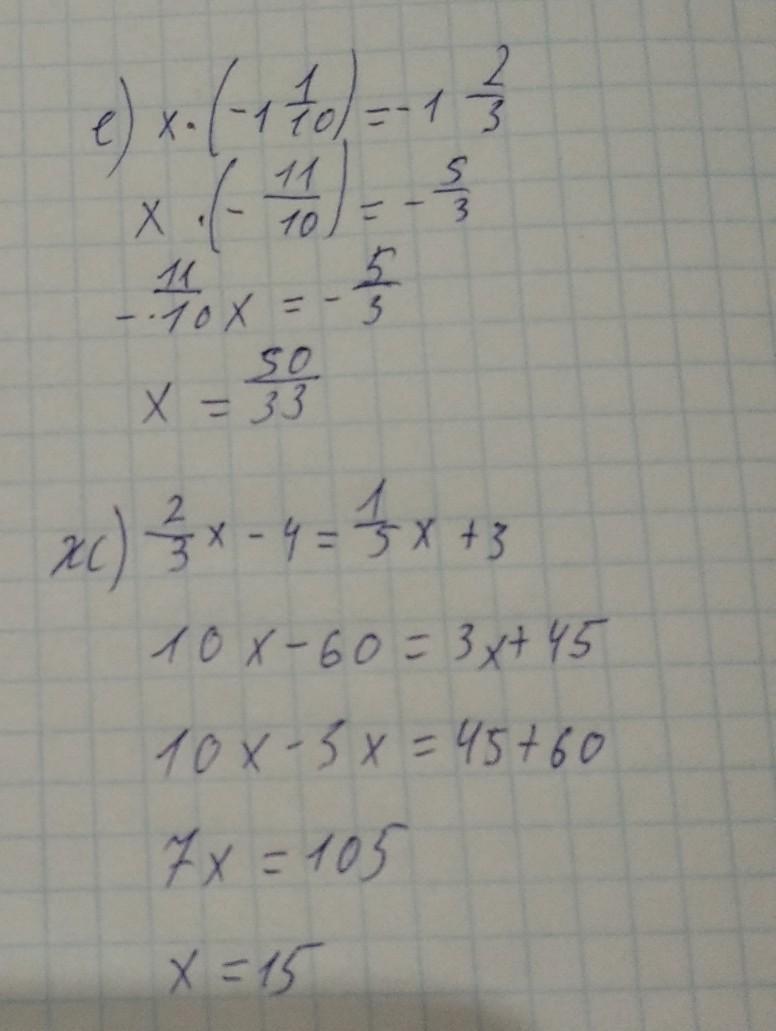 е) x·(-1 1/10) = -1 2/3
x·(-11/10) = -5/3
-11/10 x = -5/3
x = 50/33
ж) 2/3 x - 4 = 1/5 x + 3
10x - 60 = 3x + 45
10x - 3x = 45 + 60
7x = 105
x = 15